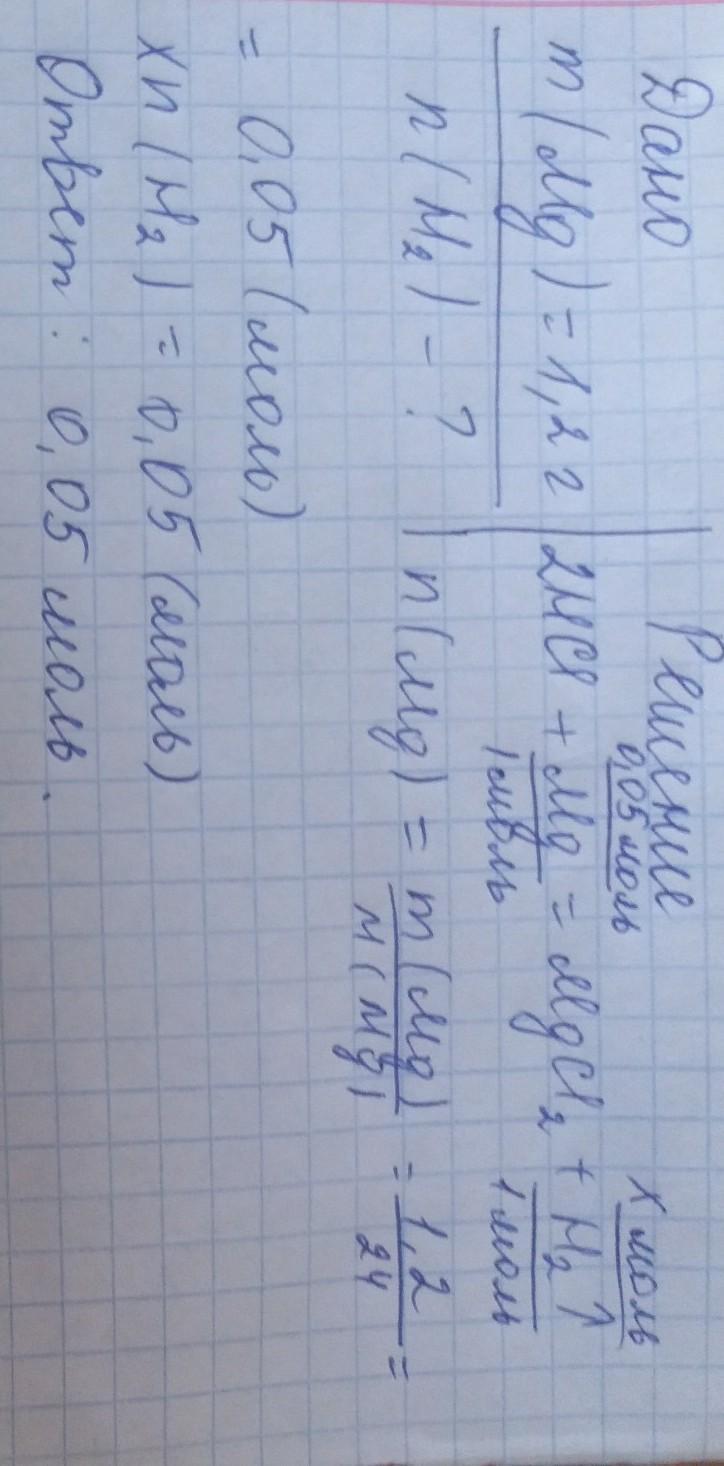 Дано
m(Mg) = 1,2 г
n(H₂) - ?
Решение
0,05 моль
x моль
2HCl + Mg = MgCl₂ + H₂↑
1 моль
1 моль
n(Mg) = m(Mg)/M(Mg) = 1,2/24 =
= 0,05 (моль)
xn(H₂) = 0,05 (моль)
Ответ: 0,05 моль.